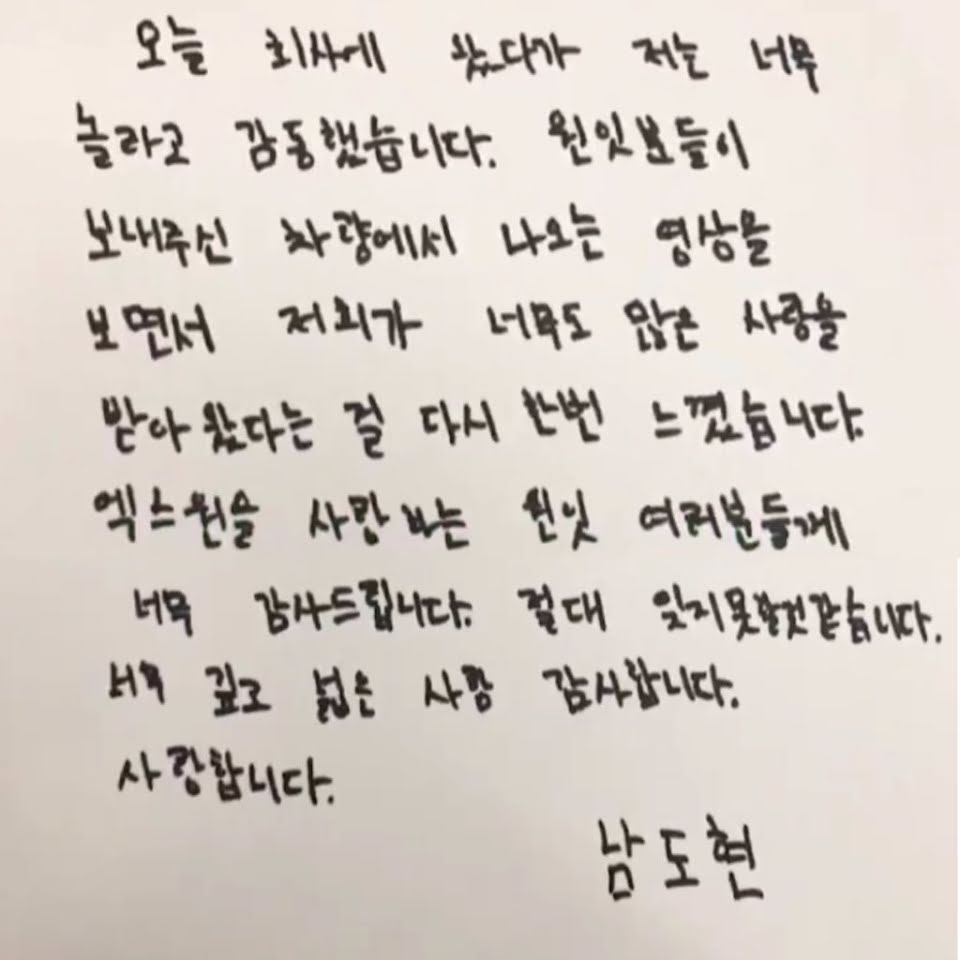 오늘 회사에 왔다가 저는 너무
놀라고 감동했습니다. 원잇분들이
보내주신 차량에서 나오는 영상을
보면서 저희가 너무도 많은 사랑을
받아왔다는 걸 다시 한번 느꼈습니다.
엑스원을 사랑하는 원잇 여러분들께
너무 감사드립니다. 절대 잊지못할것같습니다.
너무 깊고 넓은 사랑 감사합니다.
사랑합니다.
남도현